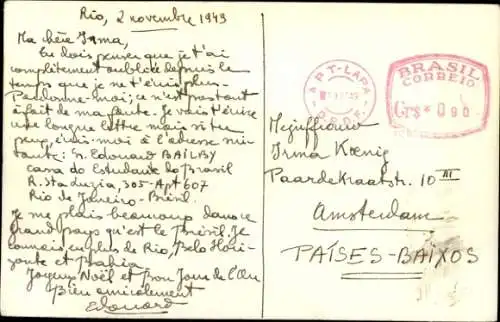 Rio, 2 novembre 1949
Ma chère Irma,
Tu dois penser que je t'ai
complètement oubliée depuis le
temps que je ne t'écris plus.
Pardonne-moi; ce n'est pas tout
à fait de ma faute. Je vais t'écrire
une longue lettre mais si tu
peux, écris-moi à l'adresse sui-
tante: Sr. Edouard BAILBY
Casa do Estudante do Brasil
R. Sta Luzia, 305-Apt 607
Rio de Janeiro - Brésil.
Je me plais beaucoup dans ce
grand pays qu'est le Brésil. Je
connais en plus de Rio, Belo Hori-
zonte et Bahia
Joyeux Noël et Bon Jour de l'An
Bien amicalement
Edouard
APT-LAPA
BRASIL
CORREIO
Crs * 0,90
Mejuffrouw
Irma Kœnig
Paardekraalstr. 10 III
Amsterdam
PAÍSES-BAIXOS